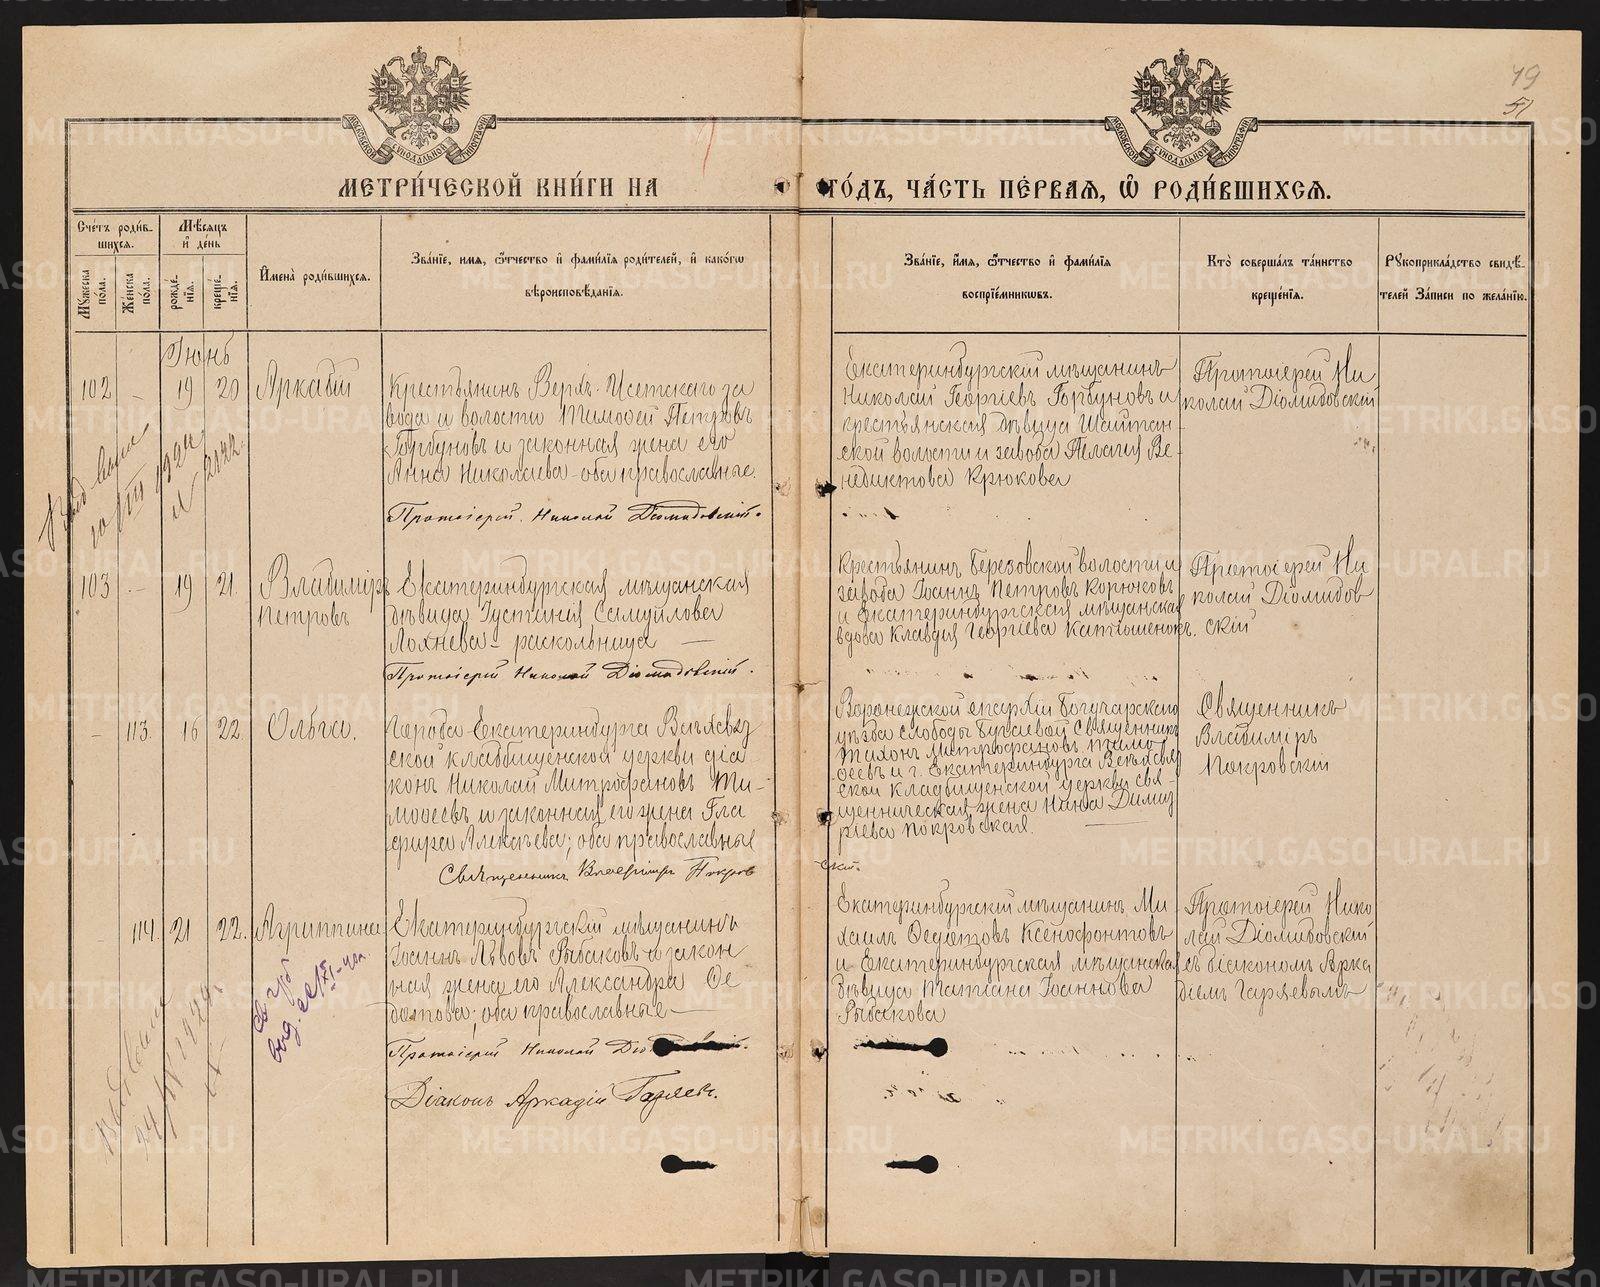 19
51
МОСКОВСКОЙ СѴНОДАЛЬНОЙ ТИПОГРАФІИ
МОСКОВСКОЙ СѴНОДАЛЬНОЙ ТИПОГРАФІИ
МЕТРИ́ЧЕСКОЙ КНИ́ГИ НА ГО́ДЪ, ЧА́СТЬ ПЕ́РВАЯ, Ѽ РОДИ́ВШИХСЯ.
Сче́тъ роди́в-
шихся.
Мужеска по́ла.
Же́нска по́ла.
Мѣ́сяцъ
и҆ де́нь
рожде́-
нїя.
креще́-
нїя.
И҆мена̀ роди́вшихся.
Зва́нїе, имя, ѻ҆́тчество и҆ фами́лїя роди́телей, и҆ како́гѡ
вѣроисповѣ́данїя.
Зва́нїе, и҆́мя, ѻ҆́тчество и҆ фами́лїя
воспрїе́мникѡвъ.
Кто̀ соверша́лъ та́инство
креще́нїя.
Рукоприкла́дство свидѣ́-
телей За́писи по жела́нїю.
Іюнь
102 - 19 20 Аркадій
Крестьянинъ Верхъ-Исетскаго за
вода и волости Тимоѳей Петровъ
Горбуновъ и законная жена его
Анна Николаева - оба православные.
Протоіерей Николай Діомидовскій.
Екатеринбургскій мѣщанинъ
Николай Георгіевъ Горбуновъ и
крестьянская дѣвица Шайтан-
ской волости и завода Пелагія Ве-
недиктова Крюкова
Протоіерей Ни
колай Діомидовскій
103 - 19 21 Владиміръ
Петровъ
Екатеринбургская мѣщанская
дѣвица Іустинія Самуилова
Лохнева - раскольница
Протоіерей Николай Діомидовскій.
Крестьянинъ Березовской волости и
завода Іоаннъ Петровъ Корюковъ
и Екатеринбургская мѣщанская
вдова Клавдія Георгіева Катюшенокъ.
Протоіерей Ни
колай Діомидов
скій
- 113. 16 22 Ольга.
Города Екатеринбурга
ской кладбищенской церкви діа
конъ Николай Митрофановъ Ти-
моѳеевъ и законная его жена Гла
фира Алексѣева; оба православные
Священникъ Владиміръ Покров
ский.
Воронежской епархіи Богучарскаго
уѣзда слободы Бугаевой Священникъ
Тихонъ Митрофановъ Тимо
ѳеевъ и г. Екатеринбурга
ской кладбищенской церкви свя-
щенническая жена Нина Димит
ріева Покровская.
Священникъ
Владиміръ
Покровскій
- 114. 21 22. Агриппина
Екатеринбургскій мѣщанинъ
Іоаннъ Львовъ Рыбаковъ и закон
ная жена его Александра Ѳе
дотова; оба православные
Протоіерей Николай
Діаконъ Аркадій Гаряевъ.
Екатеринбургскій мѣщанинъ Ми
хаилъ Ѳедотовъ Ксенофонтовъ
и Екатеринбургская мѣщанская
дѣвица Татіана Іоаннова
Рыбакова
Протоіерей Нико
лай Діомидовскій
съ діакономъ Арка
діемъ Гаряевымъ
METRIKI.GASO-URAL.RU